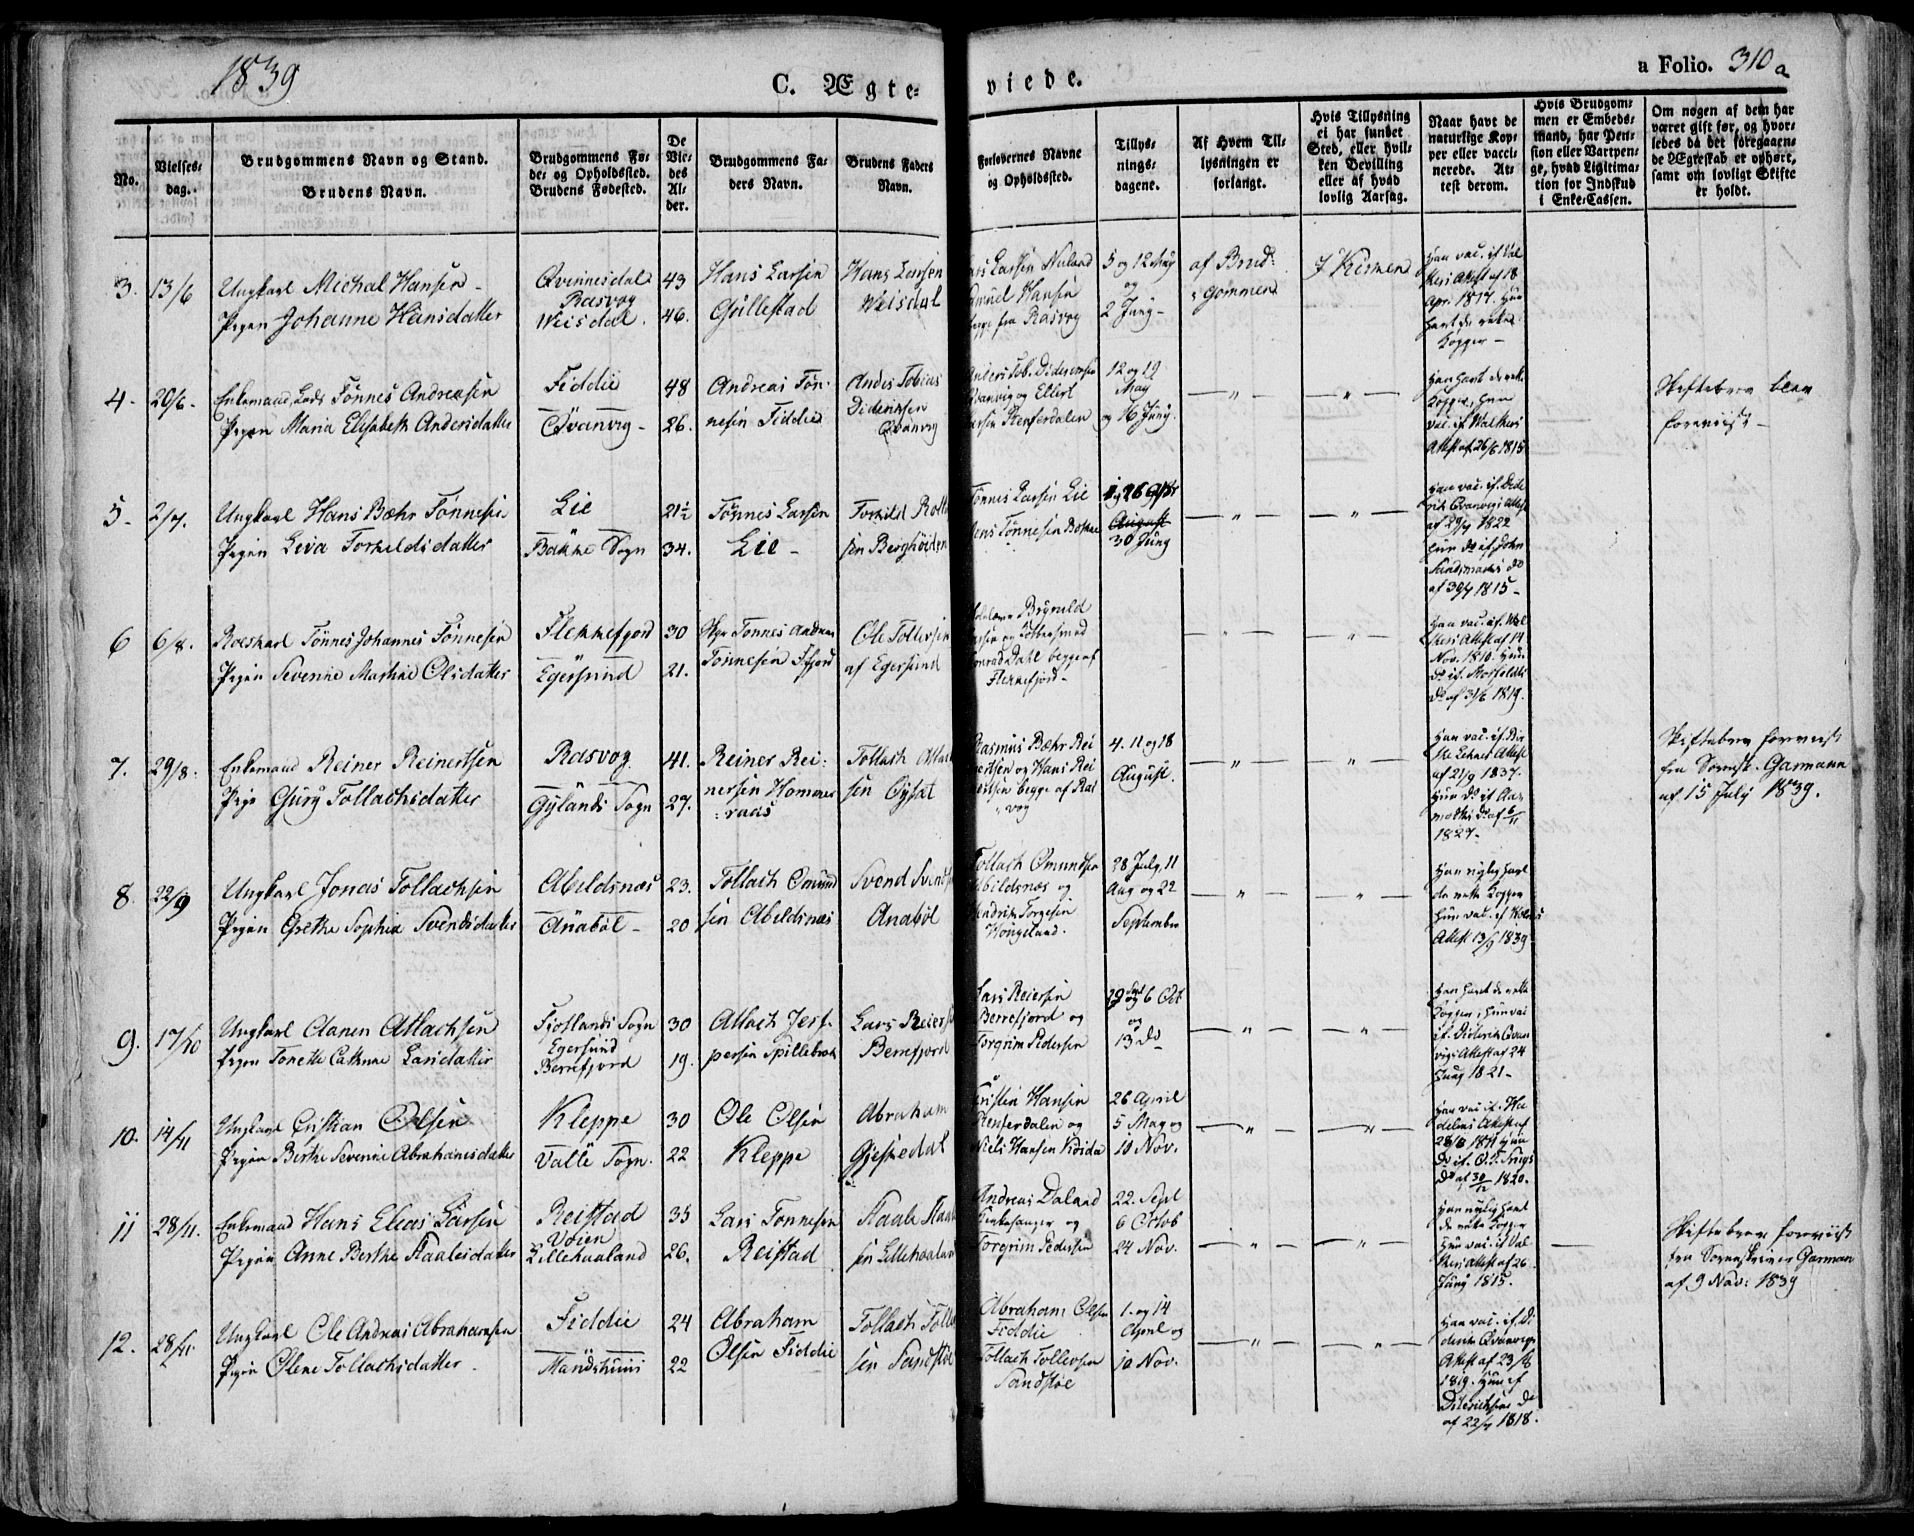 1839
C. Ægte-
viede.
a Folio. 310 a
No.
Vielses-
dag.
Brudgommens Navn og Stand.
Brudens Navn.
Brudgommens Fø-
de- og Opholdssted.
Brudens Fødested.
De
Vie-
des
Al-
der.
Brudgommens Fa-
ders Navn.
Brudens Faders
Navn.
Forlovernes Navne
og Opholdssted.
Tillys-
nings-
dagene.
Af Hvem Til-
lysningen er
forlangt.
Hvis Tillysning
ei har fundet
Sted, eller hvil-
ken Bevilling
eller af hvad
lovlig Aarsag.
Naar havt de
naturlige Kop-
per eller vacci-
nerede. At-
test derom.
Hvis Brudgom-
men er Embeds-
mand, har Pen-
sion eller Vartpen-
ge, hvad Ligitima-
tion for Indskud
i Enke-Cassen.
Om nogen af dem har
været gift før, og hvor-
ledes da det foregaaen-
de Ægteskab er ophørt,
samt om lovligt Skifte
er holdt.
3. 13/6
Ungkarl Michal Hansen
Pigen Johanne Hansdatter
Qvinnesdal
Rasvog
Weisdal.
43
46.
Hans Larsen
Gullestad
Hans Larsen
Weisdal
Larsen Nuland
Hansen
fra Rasvog
5 og 12 May
og
2 Juny
af Brud-
gommen
I Kirken
Han vac. if. Wal
kers Attest af 18
Apr. 1817. Hun
havt de rette
Kopper
4. 20/6.
Enkemand, Tønnes Andreasen
Pigen Maria Elisabeth Andersdatter
Fiddie
Qvanvig
48
26.
Andreas Tøn-
nesen Fiddie
Anders Tobias
Diderichsen
Qvanvig
Anders Tob. Diderichsen
Qvanvig og Ellert
Stenserdalen
12 og 19
May
og 16 Juny.
Han havt de rette
Kopper, hun
vac. if. Walkers
Attest af 26/6 1815
Skiftebrev blev
foreviist
5. 2/7.
Ungkarl Hans Bæhr Tønnesen
Pigen Lisa Torkeldsdatter
Lie
Bakke Sogn
21½
34.
Tønnes Larsen
Lie
Torkild
sen Berghøiden
Tønnes Larsen Lie
Jens Tønnesen
26
August
30 Juny
Han vac. if. Dide
rik Qvanvigs Attest
af 29/7 1822
Hun do if. John
Sandsmarks do
af 30/7 1815
6 6/8.
Tønnes Johannes Tønnesen
Pigen Severine Martine Olsdatter
Flekkefjord
Egersund
30
21.
Tønnes Andreas
Tønnesen Ffjord
Ole Tollefsen
af Egersund
Brynild
og
Konrad Dahl begge af
Flekkefjord
Han vac. if. Wal
kers Attest af 14
Nov. 1810. Hun
do if.
do af 31/6 1819.
7. 29/8.
Enkemand Reiner Reinertsen
Pige Gurø Tollachsdatter
Rasvog
Gylands Sogn
41.
27.
Reiner Rei-
nersen Homme
raas
Tollach
sen Øysæt
Rasmus Bæhr Rei
nertsen og Hans Rei
nertsen begge af Ras
vog
4. 11 og 18
August.
Han vac. if. Dir
Attest
af 21/9 1837.
Hun do if. Aa
moths do af 6/11
1827
Skiftebrev foreviist
fra Sorensk. Garmann
af 15 July 1839.
8. 22/9
Ungkarl Jonas Tollachsen
Pigen Grethe Sophia Svendsdatter
Abildsnæs
Anabøl
23.
20
Tollach Omund
sen Abildsnæs
Svend Svends
Anabøl
Tollach Omundsen
Abildsnæs og
Hendrik Torgesen
Wongeland.
28 July, 11
Aug og 22
September
Han havt
de rette Kopper
Hun vac. if
Attest 13/9 1839
9. 17/10
Ungkarl Aanen Atlachsen
Pigen Tonette Larsdatter
Fjotlands Sogn
Egersund
Berrefjord
30
19.
Atlach Jes-
persen Spillebrok
Lars Reiersen
Berrefjord
Lars Reiersen
Berrefjord og
Torgrim Pedersen
29 Sept og 6 Oct
og
13 do
Han havt de rette
Kopper, hun vac
if. Diderik Qvan
vigs Attest af 24
Juny 1821
10. 14/11
Ungkarl Cristian Olsen
Pigen Berthe Severine Abrahamsdatter
Kleppe
Valle Sogn.
30
22
Ole Olsen
Kleppe
Abraham
Gjeskedal
Cristen Hansen
Stenserdalen og
Niels Hansen
26 April
5 May og
10 Nov.
Han vac. if. Ha
Attest af
1811 Hun
do if. O. T.
do af 30/12 1820.
11 28/11.
Enkemand Hans Elias Larsen
Pigen Anne Berthe Staalesdatter
Reistad
Voien
Lillehaaland
35
26.
Lars Tønnesen
Reistad
Staale
sen Lillehaaland
Andreas Daland
Kirkesanger og
Torgrim Pedersen
22. Sept
6 Octob
24 Nov.
Han havt
de rette Kopper
Hun vac. if Wal
kers Attest af 26
Juny 1815.
Skiftebrev foreviist
fra Sorenskriver Garman
af 9 Nov: 1839
12. 28/11.
Ungkarl Ole Andreas Abrahamsen
Pigen Olene Tollachsdatter
Fiddie
24
22
Abraham
Olsen Fiddie
Tollach
sen Sandstøe
Abraham Olsen
Fiddie
Tollach Tollevsen
Sandstøe
1. og 14
April og
10 Nov.
Han vac. if. Di
deriks Qvanvigs
Attest af 23/8
1819. Hun af
do
af 22/7 1818.